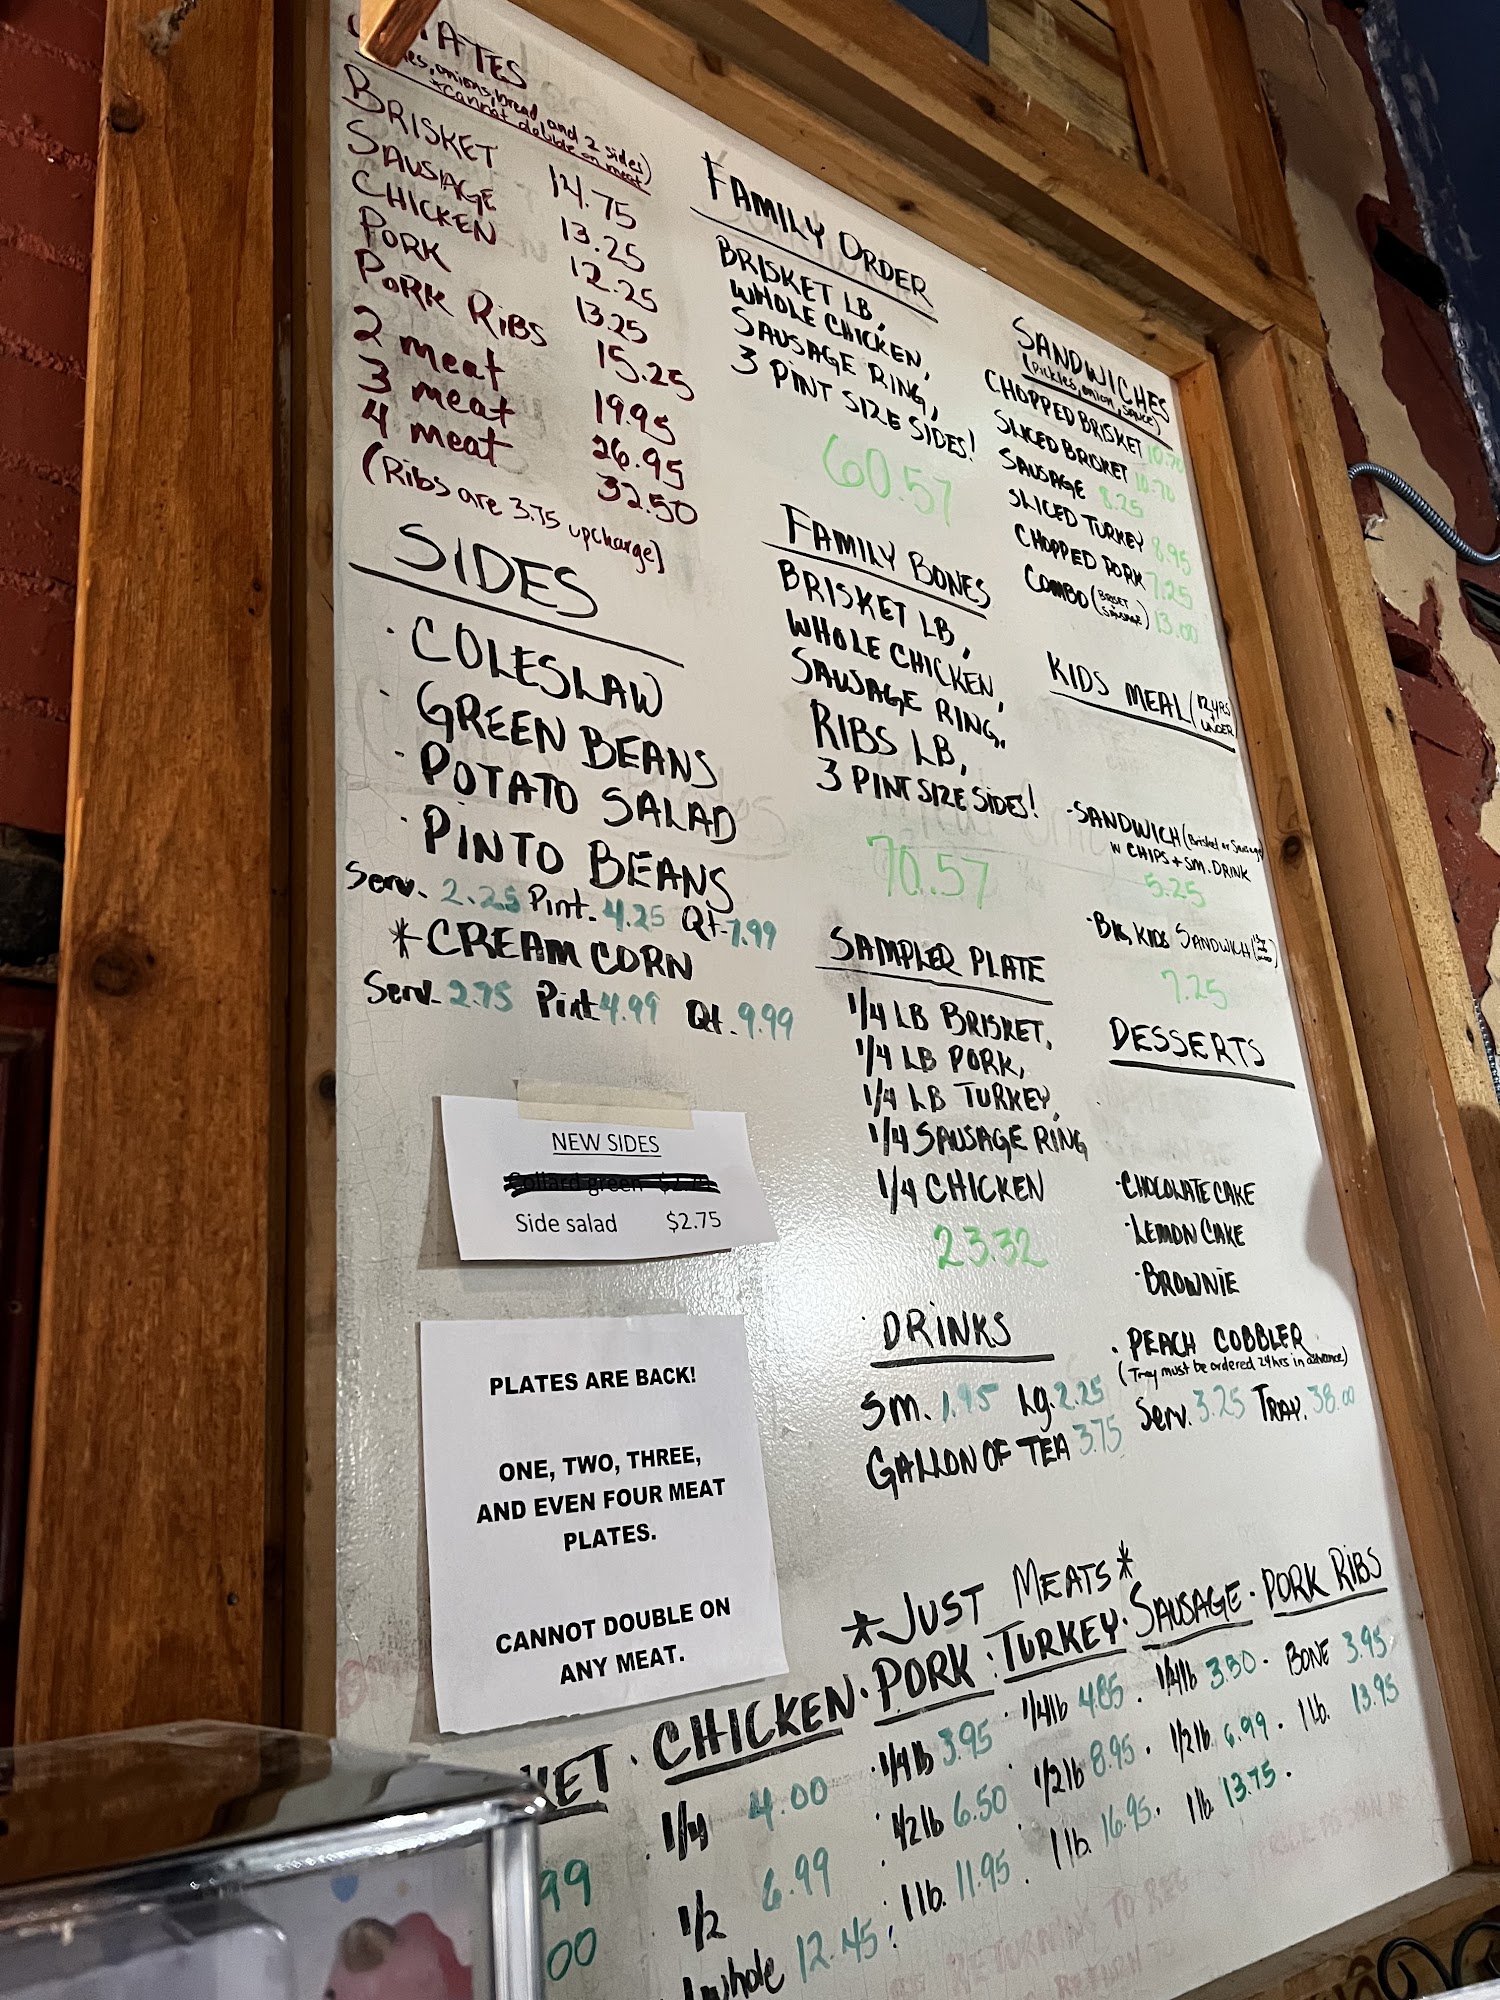 PLATES
onions, bread, and 2 sides)
*cannot double on meat
BRISKET 14.75
SAUSAGE 13.25
CHICKEN 12.25
PORK 13.25
PORK RIBS 15.25
2 meat 19.95
3 meat 26.95
4 meat 32.50
(Ribs are 3.75 upcharge)
SIDES
· COLESLAW
· GREEN BEANS
· POTATO SALAD
· PINTO BEANS
Serv. 2.25 Pint. 4.25 Qt. 7.99
*CREAM CORN
Serv. 2.75 Pint 4.99 Qt. 9.99
NEW SIDES
Collard green
Side salad $2.75
PLATES ARE BACK!
ONE, TWO, THREE,
AND EVEN FOUR MEAT
PLATES.
CANNOT DOUBLE ON
ANY MEAT.
FAMILY ORDER
BRISKET LB,
WHOLE CHICKEN,
SAUSAGE RING,
3 PINT SIZE SIDES!
60.57
FAMILY BONES
BRISKET LB,
WHOLE CHICKEN,
SAUSAGE RING,
RIBS LB,
3 PINT SIZE SIDES!
70.57
SAMPLER PLATE
1/4 LB BRISKET,
1/4 LB PORK,
1/4 LB TURKEY,
1/4 SAUSAGE RING
1/4 CHICKEN
23.32
DRINKS
Sm. 1.95 Lg. 2.25
GALLON OF TEA 3.75
SANDWICHES
(pickles, onion, sauce)
CHOPPED BRISKET 10.70
SLICED BRISKET 10.70
SAUSAGE 8.25
SLICED TURKEY 8.95
CHOPPED PORK 7.25
COMBO (BRISKET + SAUSAGE) 13.00
KIDS MEAL (12 YRS + UNDER
· SANDWICH (Brisket or Sausage)
w CHIPS + SM. DRINK
5.25
· BIG KIDS SANDWICH
7.25
DESSERTS
· CHOCOLATE CAKE
· LEMON CAKE
· BROWNIE
· PEACH COBBLER
(Tray must be ordered 24hrs in advance)
Serv. 3.25 TRAY. 38.00
*JUST MEATS*
KET · CHICKEN · PORK · TURKEY · SAUSAGE · PORK RIBS
1/4 4.00 · 1/4lb 3.95 · 1/4lb 4.85 · 1/4lb 3.50 · BONE 3.95
99 1/2 6.99 · 1/2lb 6.50 · 1/2lb 8.95 · 1/2lb 6.99 · 1 lb. 13.95
00 whole 12.45 · 1 lb. 11.95 · 1 lb. 16.95 · 1 lb 13.75 ·